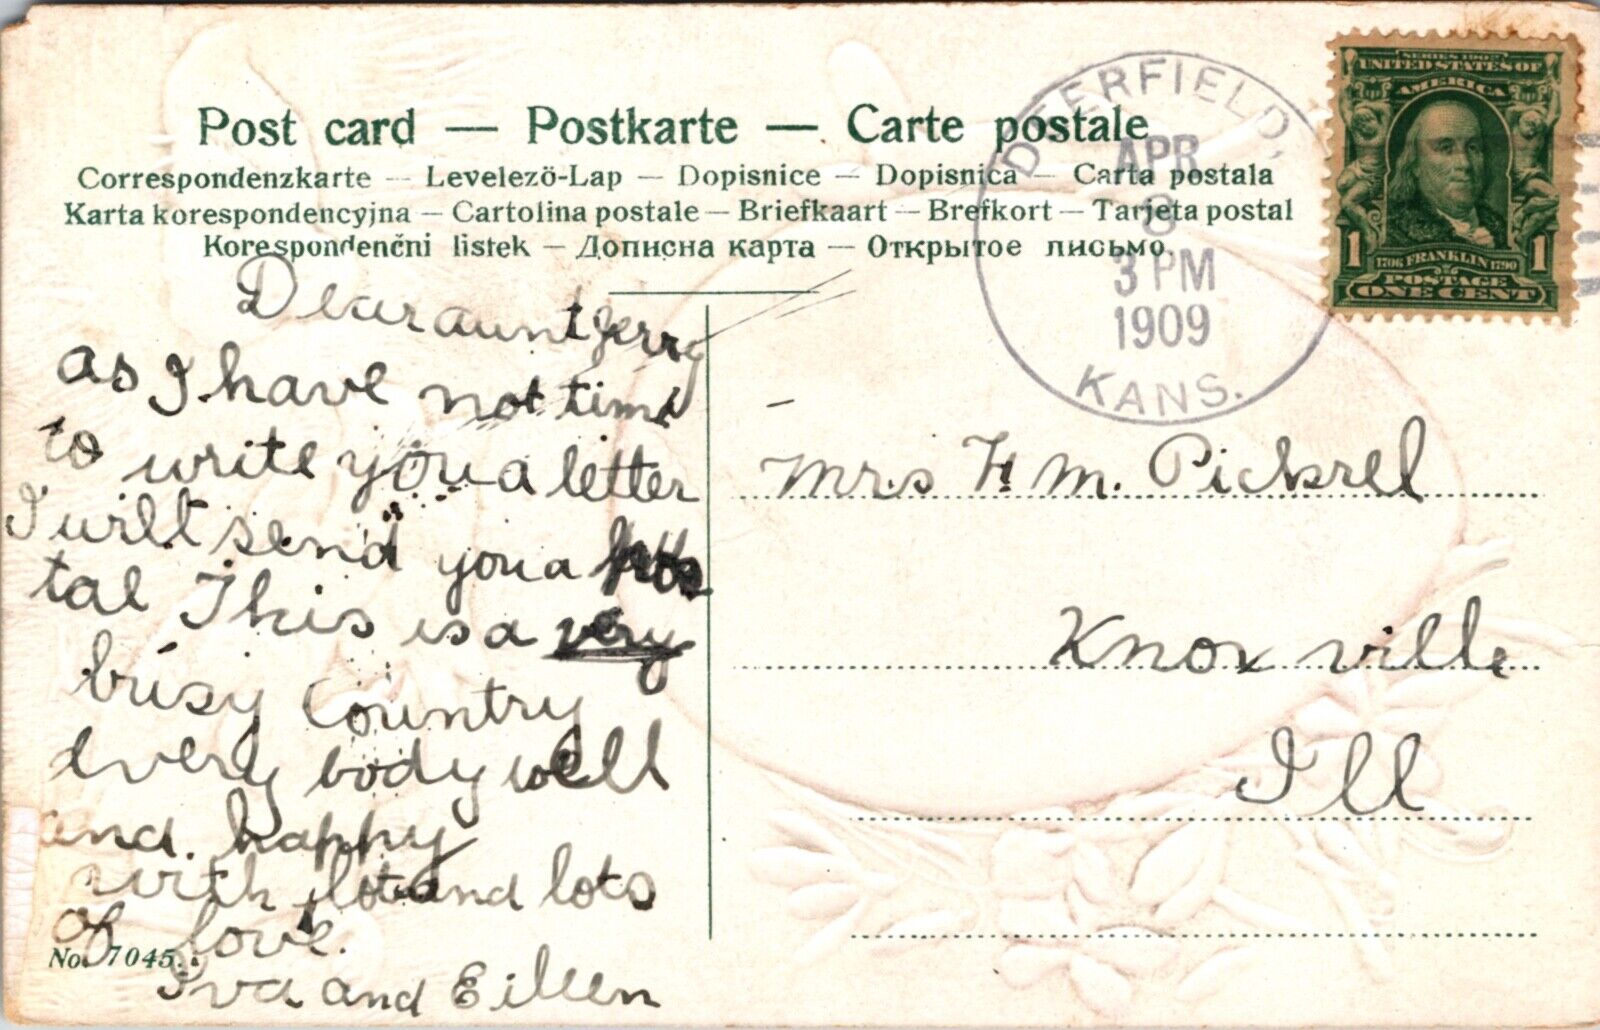 Post card — Postkarte — Carte postale
Correspondenzkarte — Levelezö-Lap — Dopisnice — Dopisnica — Carta postala
Karta korespondencyjna — Cartolina postale — Briefkaart — Brefkort — Tarjeta postal
Korespondenční listek — Дописна карта — Открытое письмо.
DEERFIELD,
APR
8
3 PM
1909
KANS.
SERIES 1902
UNITED STATES OF
AMERICA
1 1
1706 FRANKLIN 1790
POSTAGE
ONE CENT
Dear aunt Jerry
as I have not time
to write you a letter
I will send you a pos
tal This is a very
busy Country
every body well
and happy
with lots and lots
of love.
Iva and Eileen
No. 7045.
Mrs H. M. Pickrel
Knoxville
Ill